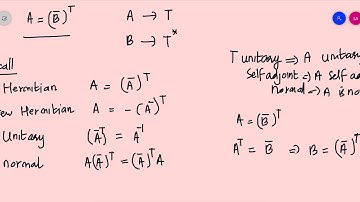 A = (B̅)ᵀ
A → T
B → T*
call
Hermitian A = (A̅)ᵀ
ew Hermitian A = -(A̅)ᵀ
Unitary (A̅)ᵀ = A⁻¹
normal A(A̅)ᵀ = (A̅)ᵀA
T unitary ⇒ A unitary
Self adjoint ⇒ A self a
normal ⇒ A is no
A = (B̅)ᵀ
Aᵀ = B̅ ⇒ B = (A̅)ᵀ